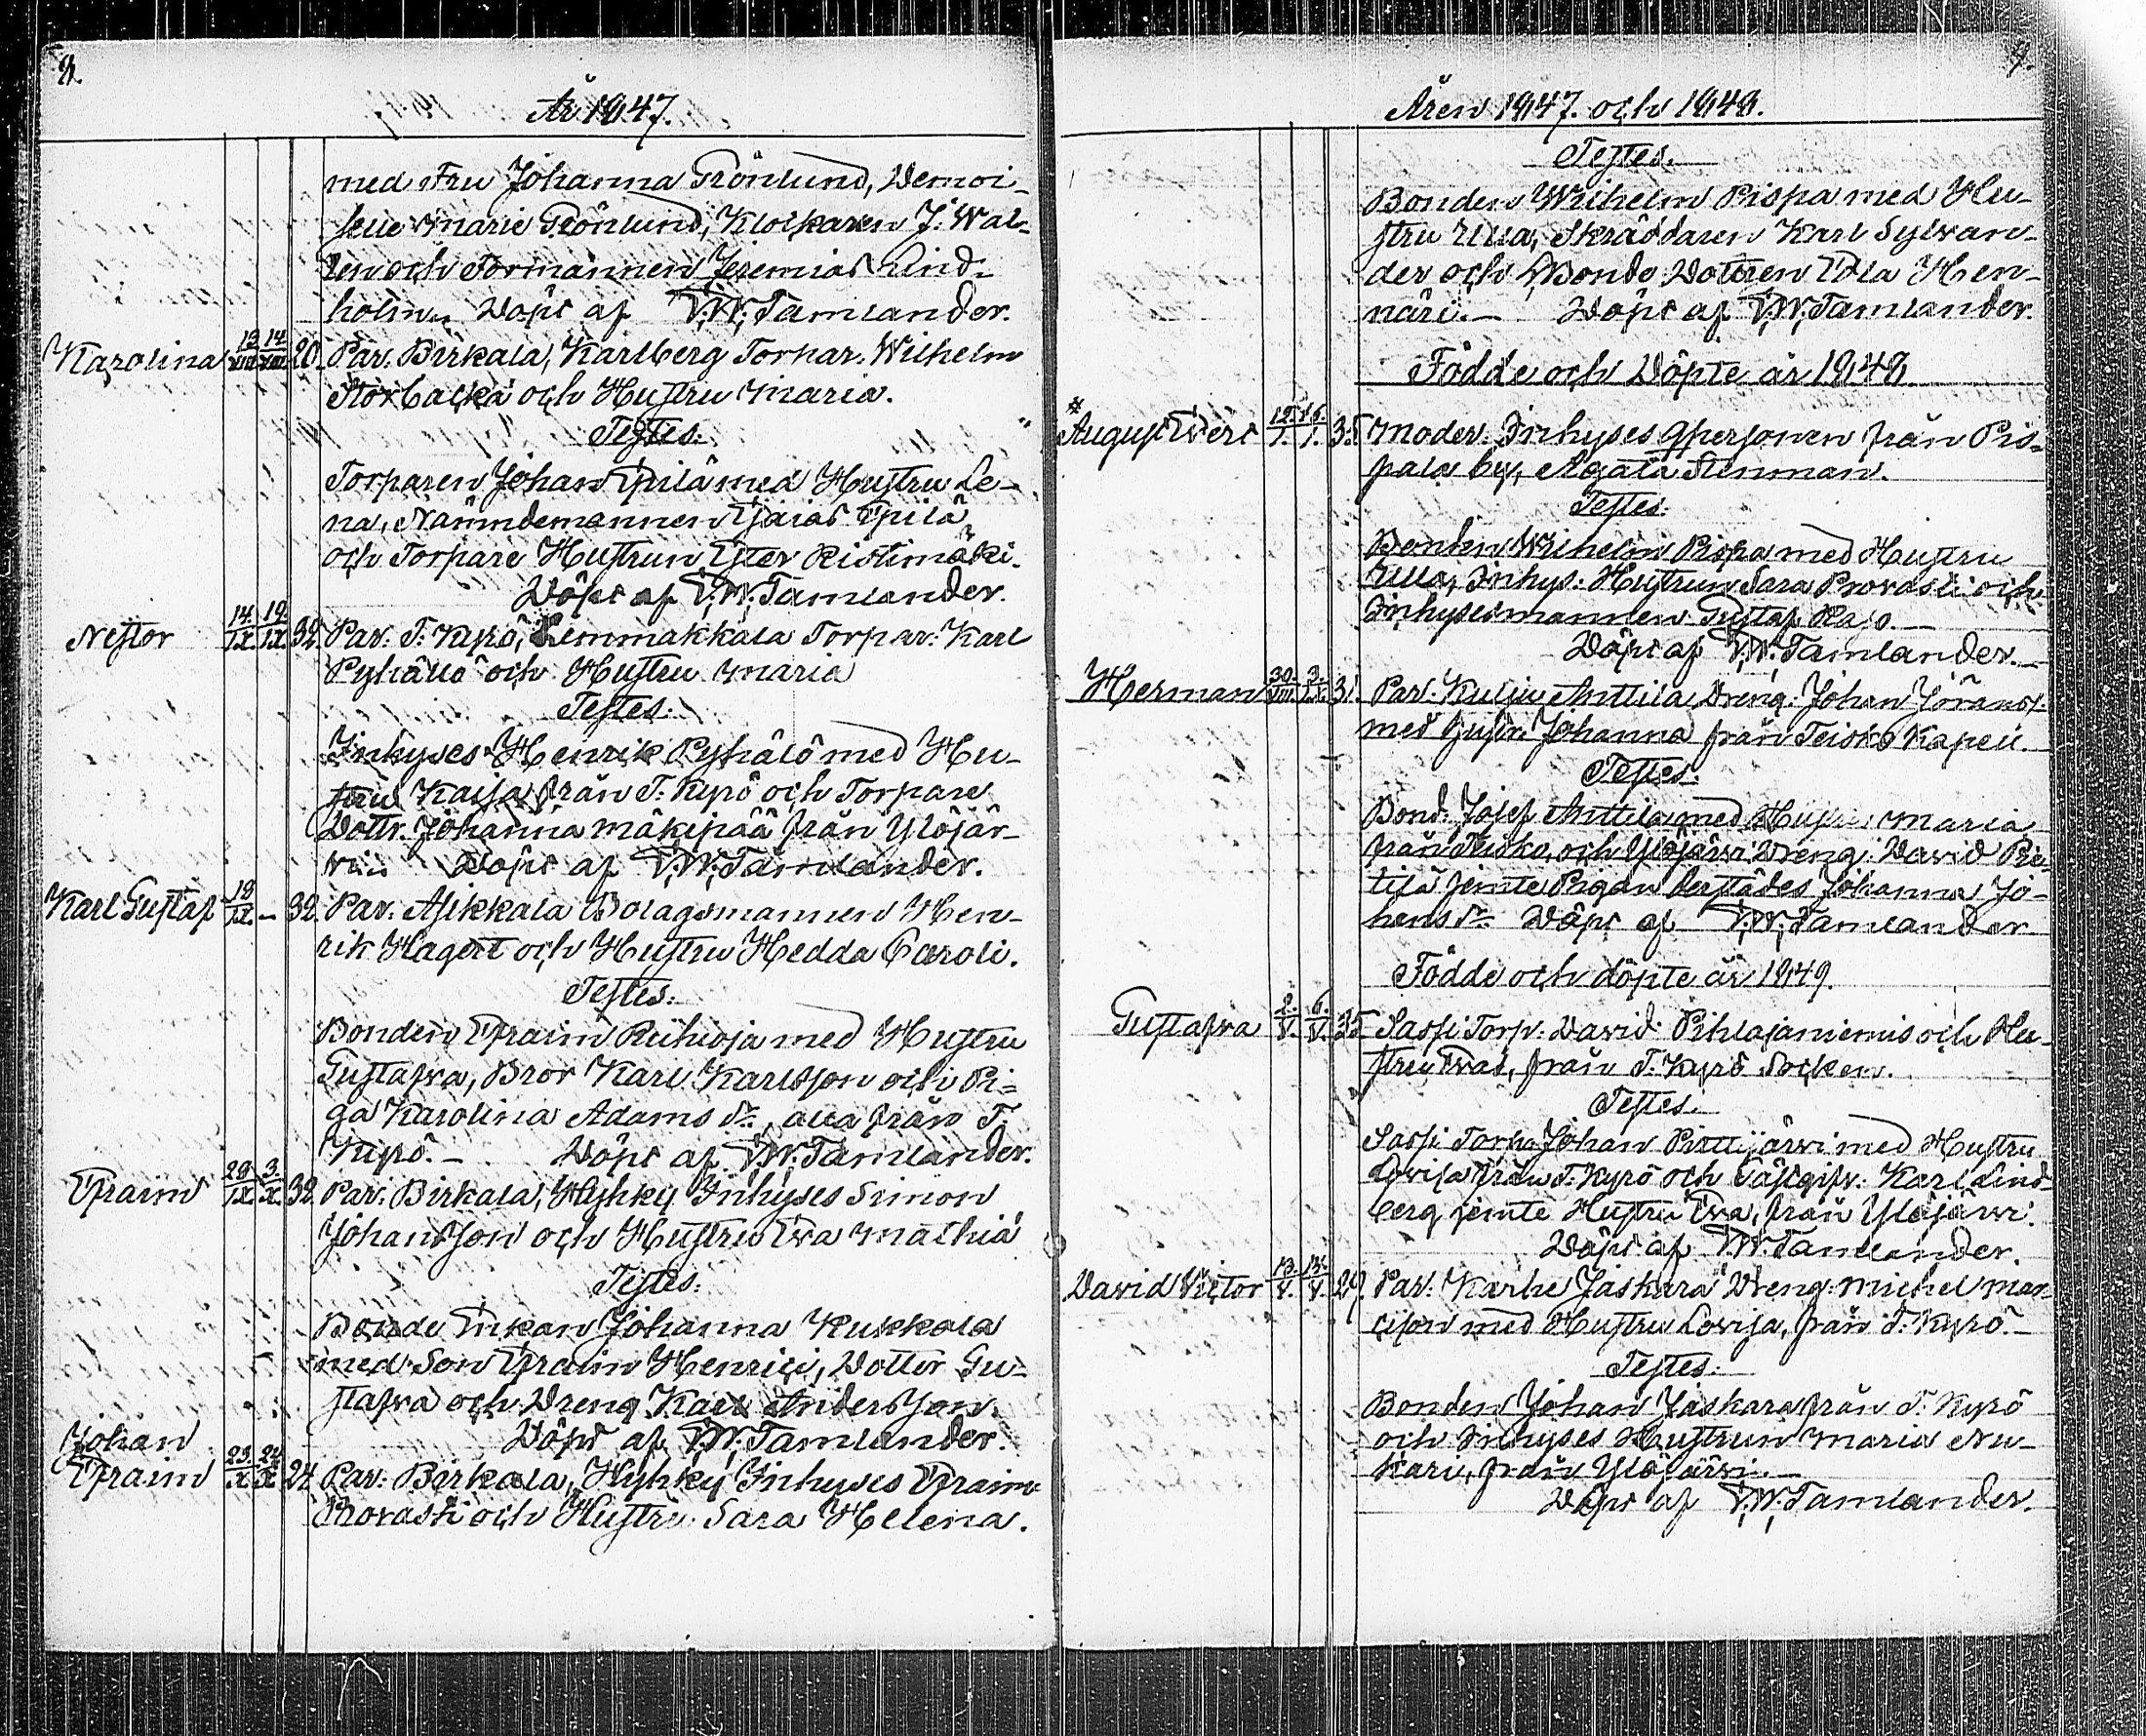 8.
År 1847.
med Fru Johanna Grönlund, Demoi-
selle Marie Grönlund, Klockaren J. Wal-
len och Formannen Jeremias Lind-
holm. Döpt af F. W. Tamlander.
Karolina 13/VIII. 14/VIII. 20. Par. Birkala, Karlberg Torpar. Wilhelm
Storbacka och Hustru Maria.
Testes.
Torparen Johan Epilä med Hustru Le-
na, Nämndemannen Esaias Epilä
och Torpare Hustrun Ester Ristimäki.
Döpt af F. W. Tamlander.
Nestor 14./IX. 19./IX. 32. Par. T. Kyrö, Lemmakkala Torpar: Karl
Pyhällö och Hustru Maria
Testes:
Inhyses Henrik Pyhälö med Hu-
stru Kaisa från T. Kyrö och Torpare
Dottr. Johanna Mäkipää från Ylöjär-
vi. Döpt af F. W. Tamlander.
Karl Gustaf 19/IX. – 32. Par. Asikkala Bolagsmannen Hen-
rik Hagert och Hustru Hedda Caroli.
Testes:
Bonden Efraim Riihioja med Hustru
Gustafva, Bror Karl Karlsson och Pi-
ga Karolina Adams dr, alla från T.
Kyrö. – Döpt af F. W. Tamlander.
Efraim 29./IX. 3./X. 32. Par: Birkala, Hyhky Inhyses Simon
Johansson och Hustru Eva Mathia
Testes:
Bonde Enkan Johanna Kukkola
med Son Efraim Henrici, Dotter Gu-
stafva och Dreng Karl Andersson.
Döpt af F. W. Tamlander.
Johan
Efraim 23./X. 24/X. 24 Par: Birkala, Hyhky Inhyses Efraim
Provasti och Hustru Sara Helena.
9.
Åren 1847. och 1848.
Testes.
Bonden Wilhelm Pispa med Hu-
stru Ulla, Skräddaren Karl Sylvan-
der och Bonde Dottren Edla Hen-
näri. – Döpt af F. W. Tamlander.
Födde och Döpte år 1848.
August Evert 12./I. 16./I. 35. Moder: Inhyses qpersonen från Pis-
pala by, Agata Stenman.
Testes:
Bonden Wilhelm Pispa med Hustru
Ulla, Inhys: Hustrun Sara Provasti och
Inhysesmannen Gustaf Rajo. –
Döpt af F. W. Tamlander. –
Herman 30./VIII. 3./IX. 31. Par. Kulju Anttila Dreng. Johan Jöranss.
med Hustr. Johanna från Teisko Kapell.
Testes:
Bond: Josef Anttila med Hustru Maria
från Teisko, och Ylöjärvi Dreng. David Pie-
tilä jemte Pigan derstädes Johanna Jo-
hans dr Döpt af F. W. Tamlander
Födde och döpte år 1849.
Gustafva 2./V. 6./V. 35 Sassi Torp: David Pihlajaniemis och Hu-
stru Evas, från T. Kyrö Socken.
Testes.
Sassi Torp. Johan Pirttijärvi med Hustru
Lovisa från T. Kyrö och Gästgifv: Karl Lind-
berg jemte Hustru Eva, från Ylöjärvi.
Döpt af F. W. Tamlander
David Victor 13./V. 13./V. 29. Par: Karhe Jaskara Dreng: Michel Mar-
cisson med Hustru Lovisa, från T. Kyrö. –
Testes:
Bonden Johan Jaskara från T. Kyrö
och Inhyses Hustrun Maria Nu-
kari, från Ylöjärvi. –
Döpt af F. W. Tamlander.